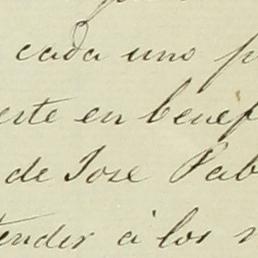 cada uno p
erte en benef
de Jose Pab
tender á los